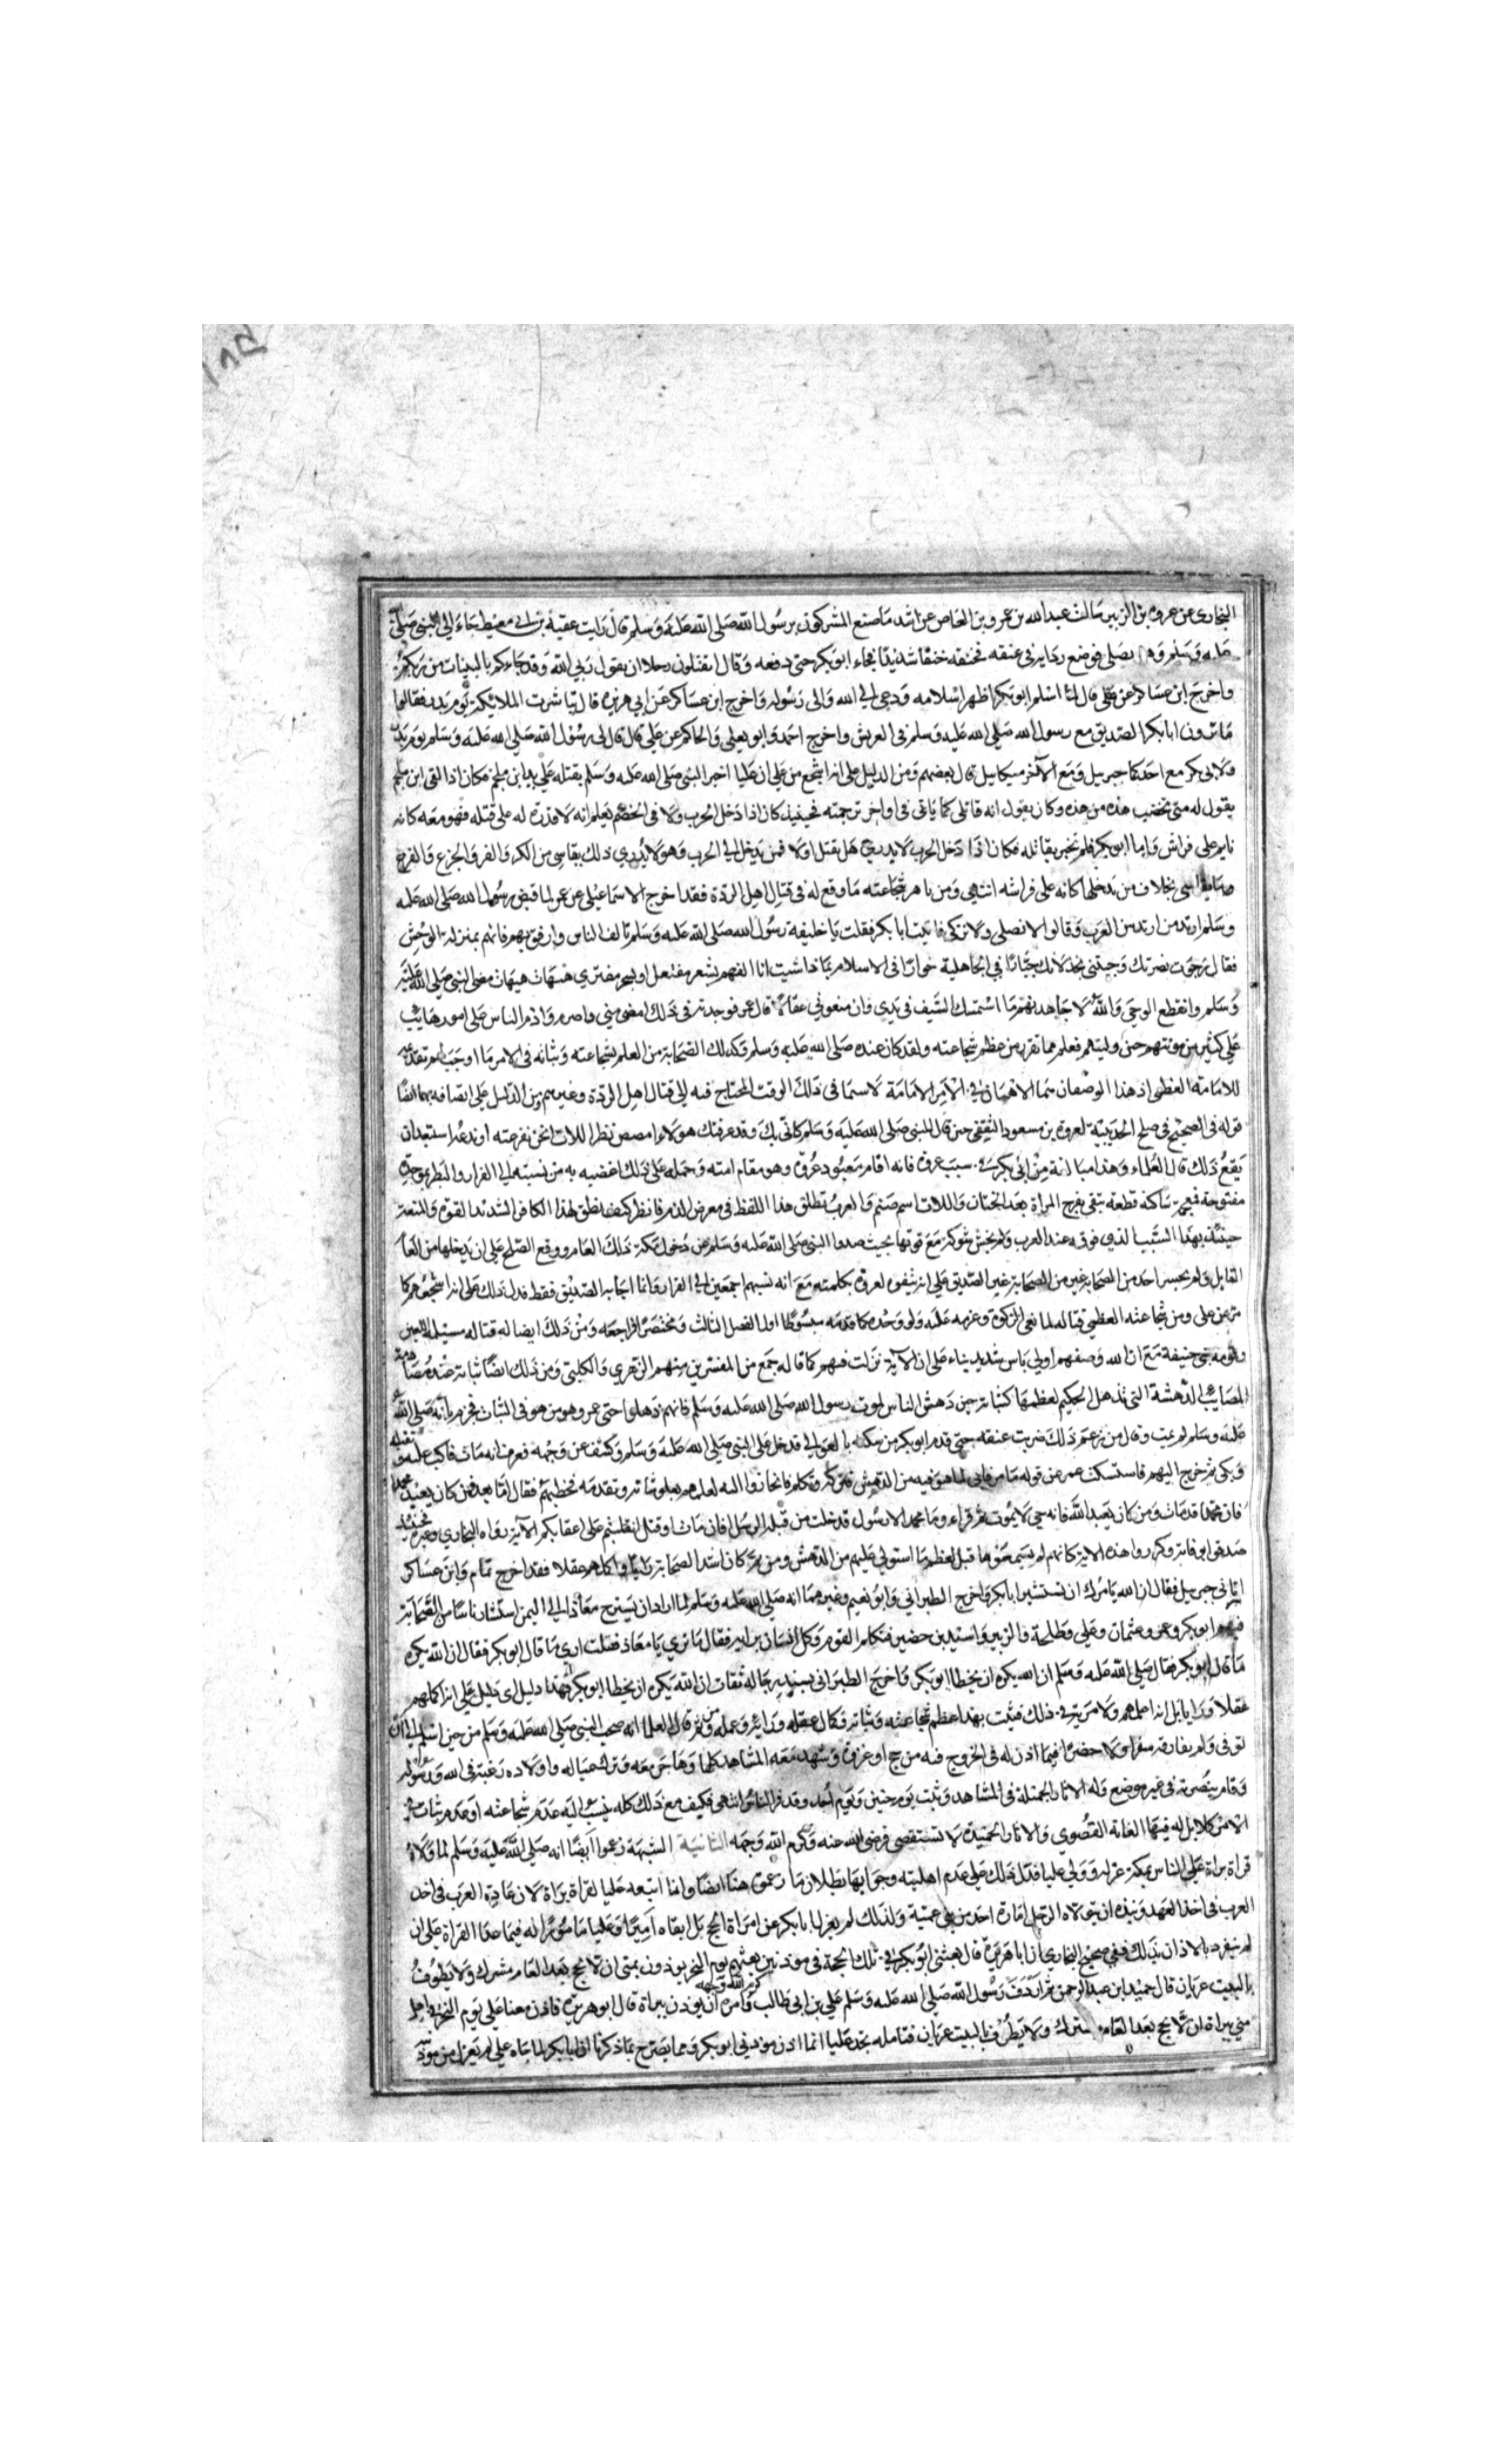 ١٨٥
البخاري عن عروة بن الزبير سالت عبد الله بن عمرو بن العاص عن اشد ما صنع المشركون برسول الله صلى الله عليه وسلم قال رايت عقبة بن ابي معيط جاء الى النبي صلى الله
عليه وسلم وهو يصلي فوضع ردايه في عنقه فخنقه خنقا شديدا فجاء ابو بكر حتى دفعه وقال اتقتلون رجلا ان يقول ربي الله وقد جاءكم بالبينات من ربكم
واخرج ابن عساكر عن علي قال لما اسلم ابو بكر اظهر اسلامه ودعى الى الله والى رسوله واخرج ابن عساكر عن ابي هريرة قال تباشرت الملائكة يوم بدر فقالوا
ما ترون ابا بكر الصديق مع رسول الله صلى الله عليه وسلم في العريش واخرج احمد وابو يعلى والحاكم عن علي قال قال لي رسول الله صلى الله عليه وسلم يوم بدر
ولابي بكر مع احدكما جبريل ومع الآخر ميكاييل قال بعضهم ومن الدليل على انه اشجع من علي ان عليا اخبره النبي صلى الله عليه وسلم بقتله على يد ابن ملجم فكان اذا لقى ابن ملجم
يقول له متى تخضب هذه من هذه وكان يقول انه قاتلي كما ياتي في اواخر ترجمته فحينئذ كان اذا دخل الحرب ولاقى الخصم يعلم انه لا قدرة له على قتله فهو معه كانه
نايم على فراش واما ابو بكر فلم يخبر بقاتله فكان اذا دخل الحرب لا يدري هل يقتل اولا فمن يدخل الى الحرب وهو لا يدري ذلك يقاسي من الكر والفر والجزع والفزع
ما يقاسى بخلاف من يدخلها كانه على فراشه انتهى ومن باهر شجاعته ما وقع له في قتال اهل الردة فقد اخرج الاسماعيلي عن عمر لما قبض رسول الله صلى الله عليه
وسلم ارتد من ارتد من العرب وقالوا لا نصلي ولا نزكي فاتيت ابا بكر فقلت يا خليفة رسول الله صلى الله عليه وسلم تالف الناس وارفق بهم فانهم بمنزلة الوحش
فقال رجوت نصرتك وجيتني بخذلانك جبارا في الجاهلية خوارا في الاسلام بماذا شيت اتالفهم بشعر مفتعل او بسحر مفترى هيهات هيهات مضى النبي صلى الله عليه
وسلم وانقطع الوحي والله لاجاهدنهم ما استمسك السيف في يدي وان منعوني عقالا قال عمر فوجدته في ذلك امضى مني واصرم واذم الناس على امور هانت
علي كثير من مونتهم حين وليتهم فعلم مما تقرر من عظم شجاعته ولقد كان عنده صلى الله عليه وسلم وكذلك الصحابة من العلم بشجاعته وثباته في الامر ما اوجب لهم تقديمه
للامامة العظمى اذ هذا الوصفان هما الاهمان في الامر الامامة لا سيما في ذلك الوقت المحتاج فيه الى قتال اهل الردة وغيرهم ومن الدليل على اتصافه بهما ايضا
قوله في الصحيح في صلح الحديبية لعروة بن مسعود الثقفي حين قال للنبي صلى الله عليه وسلم كاني بك وقد عرفتك هولاء امصص بظر اللات انحن نفر عنه او ندعه استبعدان
يقع ذلك قال العلماء وهذا مبالغة من ابي بكر في سب عروة فانه اقام معبود عروة وهو مقام امته وحمله على ذلك اغضبه به من نسبته الى الفرار والبظر بموحدة
مفتوحة فمعجمة ساكنة قطعة تبقى بفرج المراة بعد الختان واللات اسم صنم والعرب تطلق هذا اللفظ في معرض الذم فانظر كيف نطق لهذا الكافر الشديد القوة والمنعة
حينئذ بهذا السب الذي فوقه عند العرب ولم يخش شوكته مع قوتها بحيث صدوا النبي صلى الله عليه وسلم عن دخول مكة ذلك العام ووقع الصلح على ان يدخلها من العام
القابل ولم يجسر احد من الصحابة غير من الصحابة غير الصديق على ان يتفوه لعروة بكلمته مع انه نسبهم اجمعين الى الفرار وانما اجابه الصديق فقط فدل ذلك على انه اشجعهم كما
مر عن علي ومن شجاعته العظمى قتاله لمانعي الزكوة وعزمه عليه ولو وحده كما قدمه مبسوطا اول الفصل الثالث ومختصرا فراجعه ومن ذلك ايضا له قتاله مسيلمة اللعين
وقومه بني حنيفة مع ان الله وصفهم اولي باس شديد بناء على ان الآية نزلت فيهم كما قاله جمع من المفسرين منهم الزهري والكلبي ومن ذلك ايضا ثباته عند مصادمة
المصايب الدهشة التي تذهل الحكيم لعظمها كثباته حين دهش الناس لموت رسول الله صلى الله عليه وسلم فانهم ذهلوا حتى عمر وهو من هو في الثبات فجزم بانه صلى الله
عليه وسلم لم يمت وقال من زعم ذلك ضربت عنقه حتى قدم ابو بكر من مسكنه بالعوالي فدخل على النبي صلى الله عليه وسلم وكشف عن وجهه فعرف انه مات فاكب عليه يقبله
وبكى ثم خرج اليهم فاستسكت عمر عن قوله ما مر فابى لما هو فيه من الدهش فتركه وتكلم فانحازوا اليه لعلمهم بعلو شانه وتقدمه فخطبهم فقال اما بعد فمن كان يعبد محمدا
فان محمدا قد مات ومن كان يعبد الله فانه حي لا يموت ثم قراء وما محمد الا رسول قد خلت من قبله الرسل افان مات او قتل انقلبتم على اعقابكم الآية رواه البخاري وغيره فحينئذ
صدقوا بوفاته وكرروا هذه الآية كانهم لم يسمعوها قبل لعظم ما استولى عليهم من الدهش ومن ثم كان اشد الصحابة رايا واكملهم عقلا فقد اخرج تمام وابن عساكر
اتاني جبريل فقال ان الله يامرك ان تستشير ابا بكر واخرج الطبراني وابو نعيم وغيرهما انه صلى الله عليه وسلم لما اراد ان يسرح معاذا الى اليمن استشار ناسا من الصحابة
فيهم ابو بكر وعمر وعثمان وعلي وطلحة والزبير واسيد بن حضير فتكلم القوم وكل انسان برايه فقال ما ترى يا معاذ فقلت ارى ما قال ابو بكر فقال ان الله يكره
ما قال ابو بكر فقال صلى الله عليه وسلم ان الله يكره ان يخطا ابو بكر واخرج الطبراني بسند رجاله ثقات ان الله يكره ان يخطا ابو بكر فهذا دليل اي دليل على انه اكملهم
عقلا ورايا بل انه اعلمهم ولا مرية في ذلك فثبت بهذا عظم شجاعته وثباته وكمال عقله ورايه وعمله ومن ثم قال العلما انه صحب النبي صلى الله عليه وسلم من حين اسلم الى ان
توفى ولم يفارقه سفرا ولا حضرا فيما اذن له في الخروج فيه من حج او غزوة وشهد معه المشاهد كلها وهاجر معه وترك عياله واولاده رغبة في الله ورسوله
وقام بنصرته في غير موضع وله الاثار الجميلة في المشاهد وثبت يوم حنين ويوم أحد وقد فر الناس انتهى فكيف مع ذلك كله ينسب اليه عدم شجاعته او عدم ثبات في
الامر كلا بل له فيهما الغاية القصوى والاثار الحميدة لا تستقصى فرضي الله عنه وكرم الله وجهه الثانية الشبهة زعموا ايضا انه صلى الله عليه وسلم لما ولاه
قراة براة على الناس بمكة عزله وولى عليا فدل ذلك على عدم اهليته وجوابها بطلان ما زعموه هنا ايضا وانما اتبعه عليا لقراة براة لان عادة العرب في اخذ
العرب في اخذ العهد ونبذه ان يتولاه الرجل امارة احد من بني عمه ولذلك لم يعزل ابا بكر عن امراة الحج بل ابقاه اميرا وعليا مامورا له فيما عدا القراة على ان
لم ينفرد بالاذان بذلك ففي صحيح البخاري ان ابا هريرة قال بعثني ابو بكر في تلك الحجة في موذنين بعثهم يوم النحر يوذنون بمنى ان لا يحج بعد العام مشرك ولا يطوف
بالبيت عريان قال حميد ابن عبد الرحمن ثم اردف رسول الله صلى الله عليه وسلم علي بن ابي طالب كرم الله وجهه وامره ان يوذن ببراة قال ابو هريرة فاذن معنا علي يوم النحر في اهل
منى ببراة ان لا يحج بعد العام مشرك ولا يطوف بالبيت عريان فتامله تجد عليا انما اذن موذني ابو بكر ومما يصرح بما ذكرنا ان ابا بكر لما جاه علي لم يعزل من موذنيه